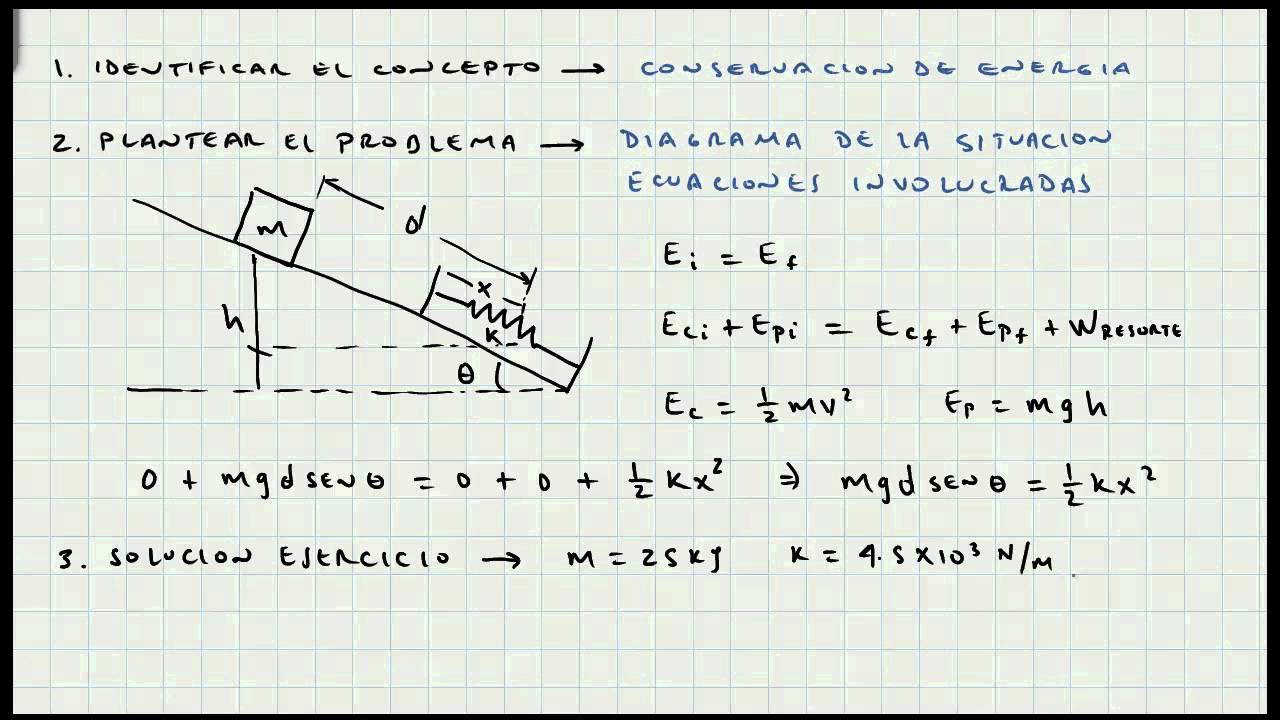 1. IDENTIFICAR EL CONCEPTO → CONSERVACION DE ENERGIA
2. PLANTEAR EL PROBLEMA → DIAGRAMA DE LA SITUACION
ECUACIONES INVOLUCRADAS
m
d
x
k
h
θ
Ei = Ef
Eci + Epi = Ecf + Epf + WRESORTE
Ec = ½ mv² Ep = mgh
0 + mgd SEN θ = 0 + 0 + ½ kx² ⇒ mgd SEN θ = ½ kx²
3. SOLUCION EJERCICIO → m = 25 kg k = 4.5 x 10³ N/m